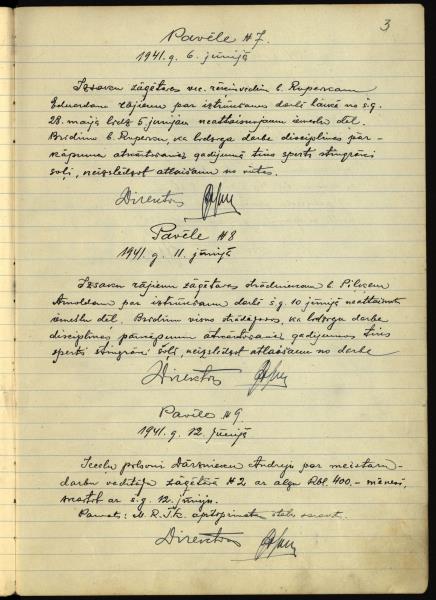 3
Pavēle #7.
1941.g. 6. jūnijā
Izsaku zāģētavas vec. rēķinvedim b. Ruperam
Eduardam rājienu par iztrūkšanu darbā laikā no š.g.
28. maija līdz 5 jūnijam neattaisnojamu iemeslu dēļ.
Brīdinu b. Ruperu, ka līdzīga darba disciplīnas pār-
kāpuma atkārtošanās gadījumā tiks sperts stingrāki
soļi, neizslēdzot atlaišanu no vietas.
Direktors
Pavēle #8
1941 g. 11. jūnijā
Izsaku rājienu zāģētavas strādniekam b.
Arnoldam par iztrūkšanu darbā š.g. 10 jūnijā neattaisnotu
iemeslu dēļ. Brīdinu visus strādniekus, ka līdzīga darba
disciplīnas pārkāpuma atkārtošanās gadījumos tiks
sperti stingrāki soļi, neizslēdzot atlaišanu no darba
Direktors
Pavēle #9
1941. g. 12. jūnijā
Ieceļu pilsoni Andreju par meistaru-
darbu vadītāju zāģētavā #2 ar algu Rbl. 400.- mēnesī,
skaitot ar š.g. 12. jūniju.
Pamats: M.R.T.k. apstiprināts štatu saraksts.
Direktors